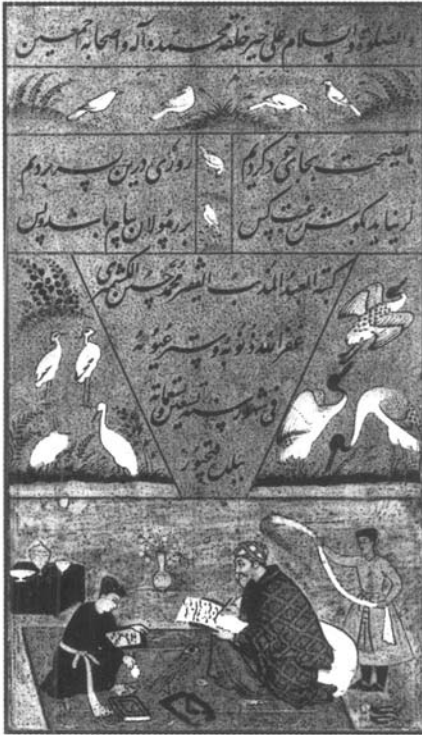 والصلوة والسلام علی خیر خلقه محمد وآله واصحابه اجمعین
ما نصیحت بجای خود کردیم روزی درین بسر بردیم
گر نیاید بگوش رغبت کس بر رسولان پیام باشد و بس
کتبه العبد المذنب الفقیر محمد حسین الکشمیری
غفر الله ذنوبه و ستر عیوبه
فی شهور سنه تسعین و تسعمائة
ببلدة فتحپور